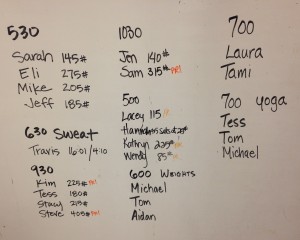 530
Sarah 145#
Eli 275#
Mike 205#
Jeff 185#
630 Sweat
Travis 16:01/4:10
930
Kim 225# PR!
Tess 180#
Stacy 215#
Steve 405# PR!
1030
Jen 140#
Sam 315# PR!
500
Lacey 115
Hannah
Kathryn 225# PR!
Wendy 85#
600 Weights
Michael
Tom
Aidan
700
Laura
Tami
700 Yoga
Tess
Tom
Michael